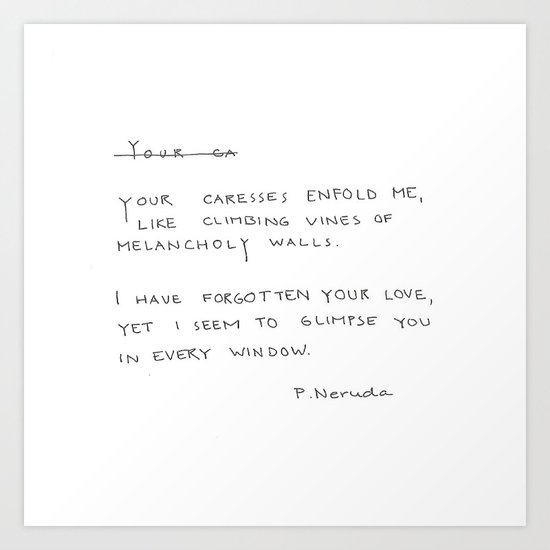 Your ca
YOUR CARESSES ENFOLD ME,
LIKE CLIMBING VINES OF
MELANCHOLY WALLS.
I HAVE FORGOTTEN YOUR LOVE,
YET I SEEM TO GLIMPSE YOU
IN EVERY WINDOW.
P. Neruda